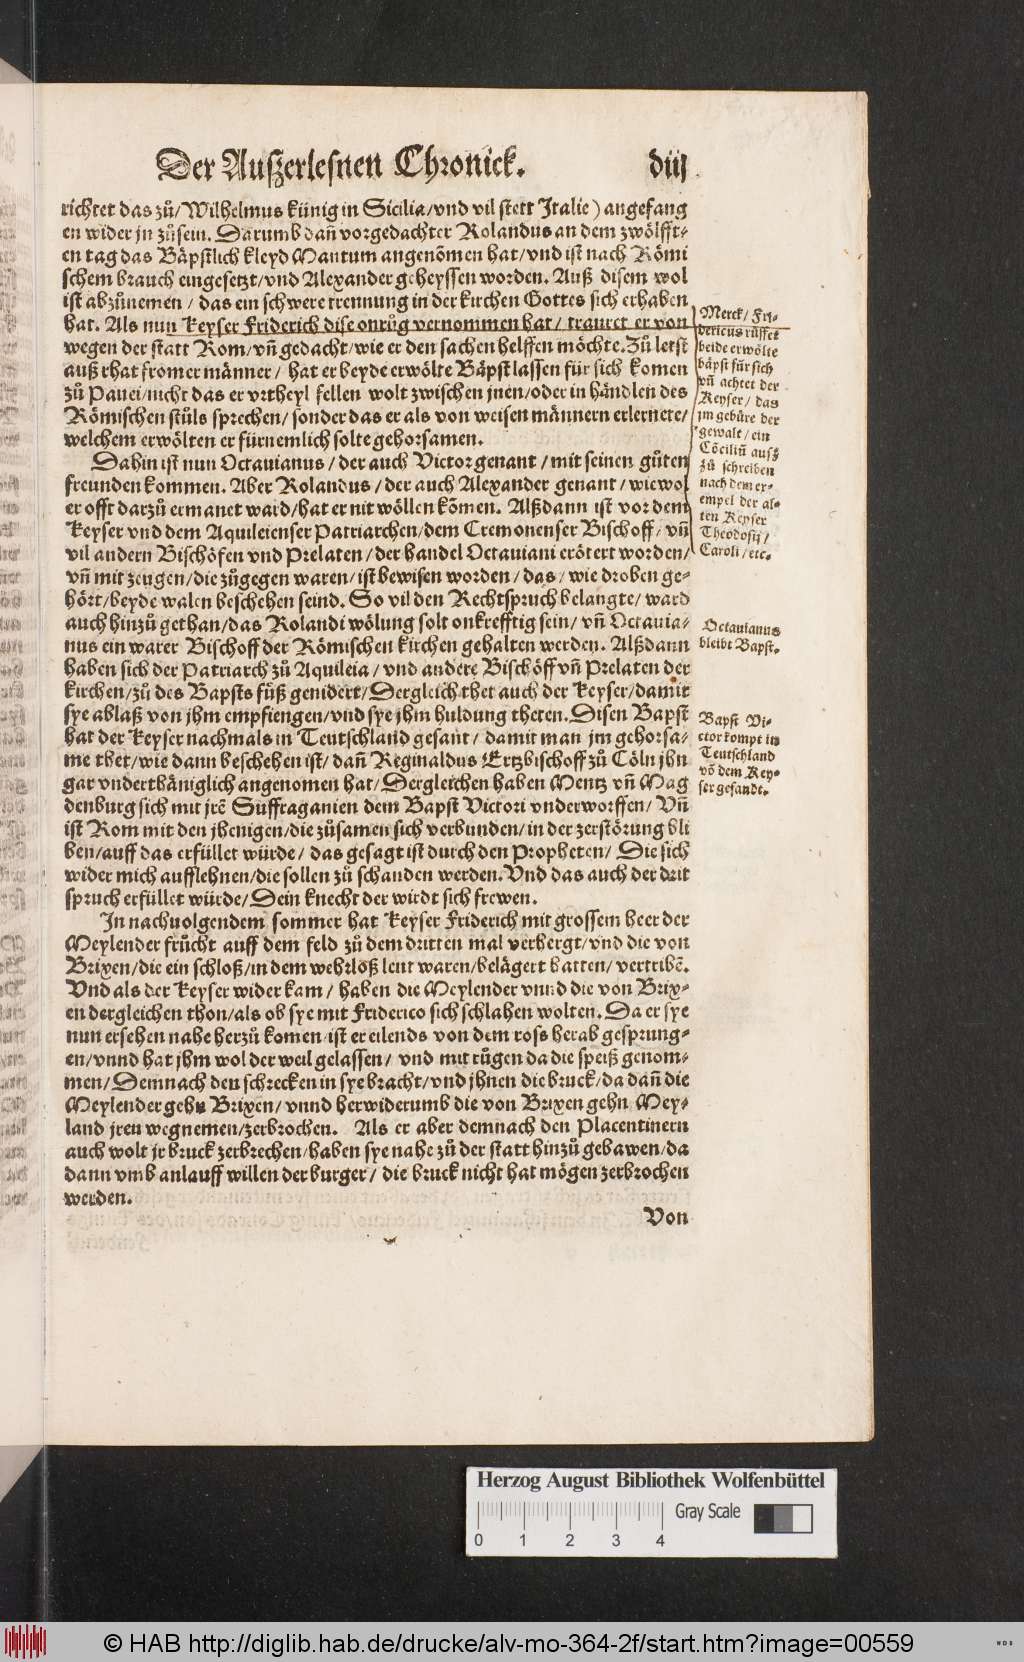 Der Außerlesnen Chronick. diij
richtet das zů/Wilhelmus künig in Sicilia/vnd vil stett Italie) angefang
en wider jn zůsein. Darumb dañ vorgedachter Rolandus an dem zwölfft-
en tag das Bäpstlich kleyd Mantum angenõmen hat/vnd ist nach Römi
schem brauch eingesetzt/vnd Alexander geheyssen worden. Auß disem wol
ist abzůnemen / das ein schwere trennung in der kirchen Gottes sich erhaben
hat. Als nun Keyser Friderich dise onrůg vernommen hat/ trauret er von
wegen der statt Rom/vñ gedacht/wie er den sachen helffen möchte. Zů letst
auß rhat fromer männer/ hat er beyde erwölte Bäpst lassen für sich komen
zů Pauei/nicht das er vrtheyl fellen wolt zwischen jnen/oder in händlen des
Römischen stůls sprechen/sonder das er als von weisen männern erlernete/
welchem erwölten er fürnemlich solte gehorsamen.
Dahin ist nun Octauianus/der auch Victor genant/mit seinen gůten
freunden kommen. Aber Rolandus/der auch Alexander genant/wiewol
er offt darzů ermanet ward/hat er nit wöllen kõmen. Alßdann ist vor dem
Keyser vnd dem Aquileienser Patriarchen/dem Cremonenser Bischoff/vñ
vil andern Bischöfen vnd Prelaten/der handel Octauiani erötert worden/
vñ mit zeugen/die zůgegen waren/ist bewisen worden/das/wie droben ge-
hört/beyde walen beschehen seind. So vil den Rechtspruch belangte/ward
auch hinzů gethan/das Rolandi wölung solt onkrefftig sein/vñ Octauia-
nus ein warer Bischoff der Römischen kirchen gehalten werden. Alßdann
haben sich der Patriarch zů Aquileia/vnd andere Bischöff vñ Prelaten der
kirchen/zů des Bapsts fůß genidert/Dergleich thet auch der Keyser/damit
sye ablaß von jhm empfiengen/vnd sye jhm huldung theten. Disen Bapst
hat der Keyser nachmals in Teutschland gesant/damit man jm gehorsa-
me thet/wie dann beschehen ist/dañ Reginaldus Ertzbischoff zů Cöln jhn
gar vnderthäniglich angenomen hat/Dergleichen haben Mentz vñ Mag
denburg sich mit jrẽ Suffraganien dem Bapst Victori vnderworffen/Vñ
ist Rom mit den jhenigen/die zůsamen sich verbunden/in der zerstörung bli
ben/auff das erfüllet würde/das gesagt ist durch den Propheten/Die sich
wider mich aufflehnen/die sollen zů schanden werden. Vnd das auch der drit
spruch erfüllet würde/Dein knecht der wirdt sich frewen.
In nachuolgendem sommer hat Keyser Friderich mit grossem heer der
Meylender frücht auff dem feld zů dem dritten mal verhergt/vnd die von
Brixen/die ein schloß/in dem wehrloß leut waren/belägert hatten/vertribẽ.
Vnd als der Keyser wider kam/haben die Meylender vnnd die von Brix-
en dergleichen thon/als ob sye mit Friderico sich schlahen wolten. Da er sye
nun ersehen nahe herzů komen/ist er eilends von dem ross herab gesprung-
en/vnnd hat jhm wol der weil gelassen/vnd mit růgen da die speiß genom-
men/Demnach den schrecken in sye bracht/vnd jhnen die bruck/da dañ die
Meylender gehn Brixen/vnnd herwiderumb die von Brixen gehn Mey-
land jren weg nemen/zerbrochen. Als er aber demnach den Placentinern
auch wolt jr bruck zerbrechen/haben sye nahe zů der statt hinzů gebawen/da
dann vmb anlauff willen der burger/die bruck nicht hat mögen zerbrochen
werden.
Von
Merck/Fri-
dericus rüffet
beide erwölte
bäpst für sich
vñ achtet der
Keyser/das
jm gebüre der
gewalt/ein
Cõciliũ ausz
zů schreiben
nach dem ex-
empel der al-
ten Keyser
Theodosij/
Caroli/etc.
Octauianus
bleibt Bapst.
Bapst Vi-
ctor kompt in
Teutschland
võ dem Key-
ser gesandt.
Herzog August Bibliothek Wolfenbüttel
Gray Scale
0 1 2 3 4
© HAB http://diglib.hab.de/drucke/alv-mo-364-2f/start.htm?image=00559